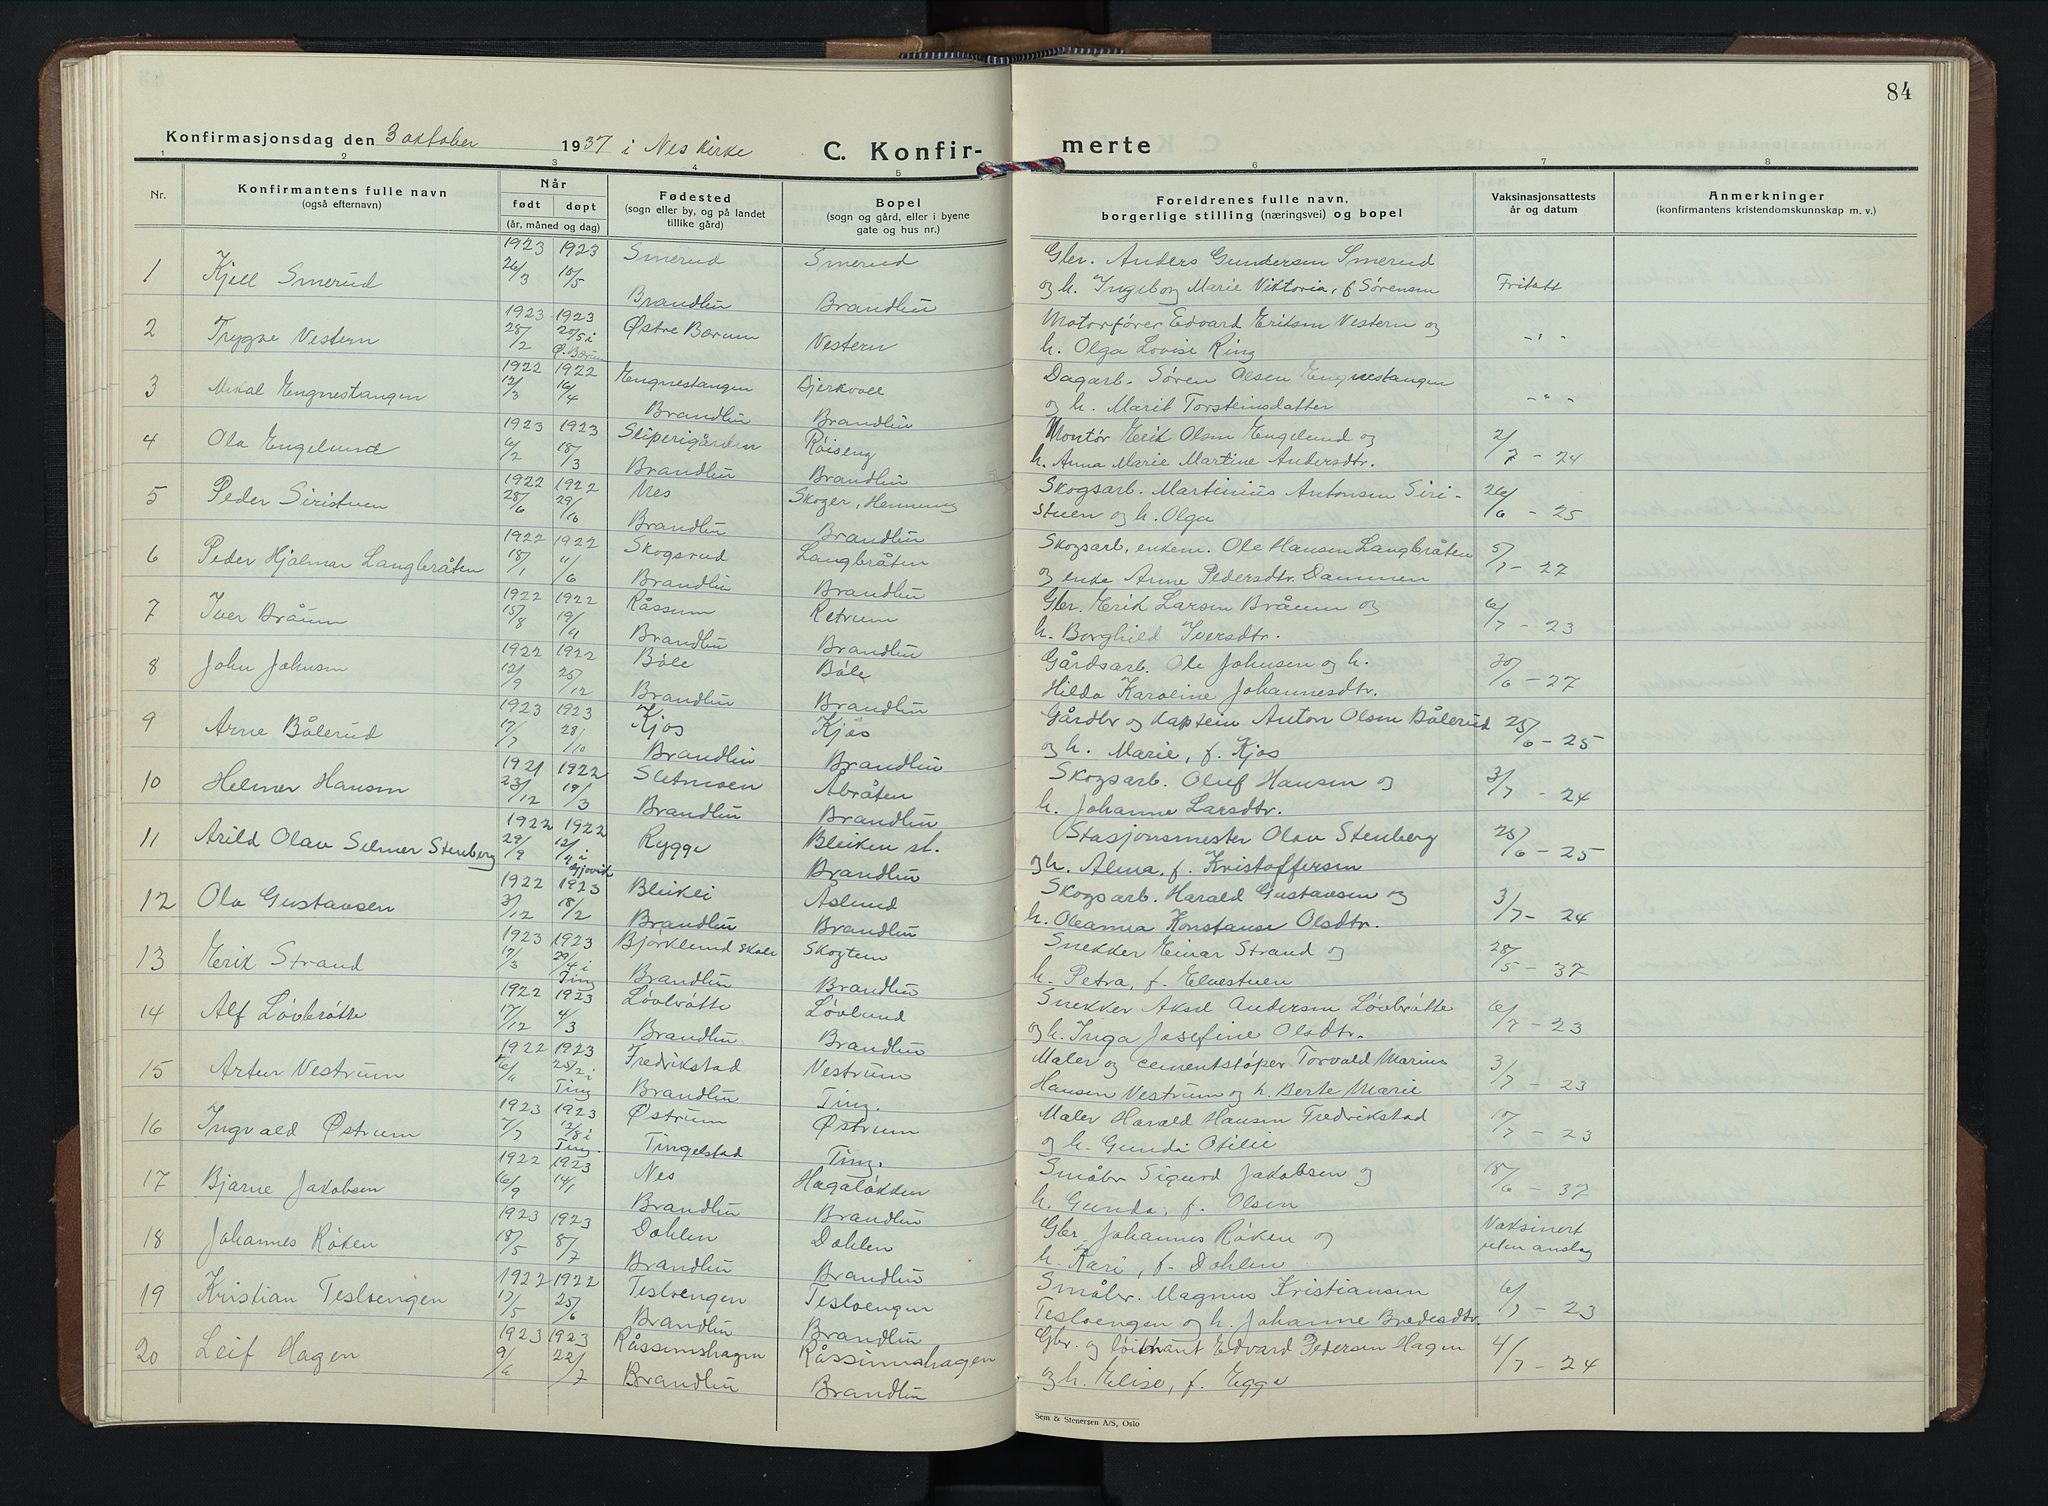 84
Konfirmasjonsdag den 3 oktober 1937 i Nes kirke
C. Konfir- merte
1 2 3 4 5 6 7 8
Nr. Konfirmantens fulle navn (også efternavn) Når født døpt (år, måned og dag) Fødested (sogn eller by, og på landet tillike gård) Bopel (sogn og gård, eller i byene gate og hus nr.) Foreldrenes fulle navn, borgerlige stilling (næringsvei) og bopel Vaksinasjonsattests år og datum Anmerkninger (konfirmantens kristendomskunnskap m. v.)
1923 1923 Smerud Smerud Gbr. Anders Gundersen Smerud
1 Kjell Smerud 26/3 10/5 Brandbu Brandbu og h. Ingeborg Marie Viktoria, f Sørensen Fritatt
1923 1923 Østre Bærum Motorfører Edvard Eriksen Vestern og
2 Trygve Vestern 28/2 20/5 i Ø. Bærum Vestern h. Olga Lovise Ring -"-
1922 1922 Engnestangen Bjerkvoll Dagarb. Søren Olsen Engnestangen
3 Mikal Engnestangen 12/3 16/4 Brandbu Brandbu og h. Marit Torsteinsdatter -"-
1923 1923 Sliperigården Røiseng Montør Erik Olsen Engelund og
4 Ola Engelund 6/2 18/3 Brandbu Brandbu h. Anna Marie Martine Andersdtr. 2/7 - 24
1922 1922 Nes Skoger, Henning Skogsarb. Martinius Antonsen Siri-
5 Peder Siristuen 28/6 29/10 Brandbu Brandbu stuen og h. Olga 26/6 - 25
1922 1922 Skogsrud Langbråten Skogsarb, enkem. Ole Hansen Langbråten
6 Peder Hjalmar Langbråten 18/1 11/6 Brandbu Brandbu og enke Anne Pedersdtr. Dammen 5/7 - 27
1922 1922 Råssum Retrum Gbr. Erik Larsen Bråum og
7 Iver Bråum 15/8 19/11 Brandbu Brandbu h. Borghild Iversdtr. 6/7 - 23
1922 1922 Bøle Bøle Gårdsarb. Ole Johnsen og h.
8 John Johnsen 12/9 25/12 Brandbu Brandbu Hilda Karoline Johannesdtr. 30/6 - 27
1923 1923 Kjos Kjos Gårdbr og kaptein Anton Olsen Bålerud
9 Arne Bålerud 17/7 28/10 Brandbu Brandbu og h. Marie, f. Kjos 25/6 - 25
1921 1922 Sletmoen Åbråten Skogsarb. Oluf Hansen og
10 Helmer Hansen 23/12 19/3 Brandbu Brandbu h. Johanne Larsdtr. 3/7 - 24
1922 1922 Rygge Bleiken st. Stasjonsmester Olav Stenberg
11 Arild Olav Selmer Stenberg 29/9 12/11 i Gjøvik Brandbu og h. Alma, f. Kristoffersen 25/6 - 25
1922 1923 Bleikli Åslund Skogsarb. Harald Gustavsen og
12 Ola Gustavsen 3/12 18/2 Brandbu Brandbu h. Oleanna Konstanse Olsdtr. 3/7 - 24
1923 1923 Bjørklund skole Skogtun Snekker Einar Strand og
13 Erik Strand 17/3 29/4 i Ting Brandbu Brandbu h. Petra, f. Elvestuen 28/5 - 37
1922 1923 Løvbråtte Løvlund Snekker Aksel Andersen Løvbråtte
14 Alf Løvbråtte 17/12 4/3 Brandbu Brandbu og h. Inga Josefine Olsdtr. 6/7 - 23
1922 1923 Fredrikstad Vestrum Maler og cementstøper Torvald Marius
15 Artur Vestrum 6/11 25/2 i Ting Brandbu Ting. Hansen Vestrum og h. Berte Marie 3/7 - 23
1923 1923 Østrum Østrum Maler Harald Hansen Fredrikstad
16 Ingvald Østrum 7/7 12/8 i Ting. Tingelstad Ting. og h. Gunda Otilie 10/7 - 23
1922 1923 Nes Hagaløkken Småbr Sigurd Jakobsen og
17 Bjarne Jakobsen 16/9 14/1 Brandbu Brandbu h. Gunda, f. Olsen 18/6 - 37
1923 1923 Dahlen Dahlen Gbr. Johannes Røken og
18 Johannes Røken 18/5 8/7 Brandbu Brandbu h. Kari, f. Dahlen Vaksinert uten anslag
1922 1922 Tesloengen Tesloengen Småbr. Magnus Kristiansen
19 Kristian Tesloengen 17/5 25/6 Brandbu Brandbu Tesloengen og h. Johanne Bredesdtr. 6/7 - 23
1923 1923 Råssumshagen Råssumshagen Gbr. og løitnant Edvard Pedersen Hagen
20 Leif Hagen 22/7 Brandbu Brandbu og h. Elise, f. Egge 4/7 - 24
Sem & Stenersen A/S, Oslo